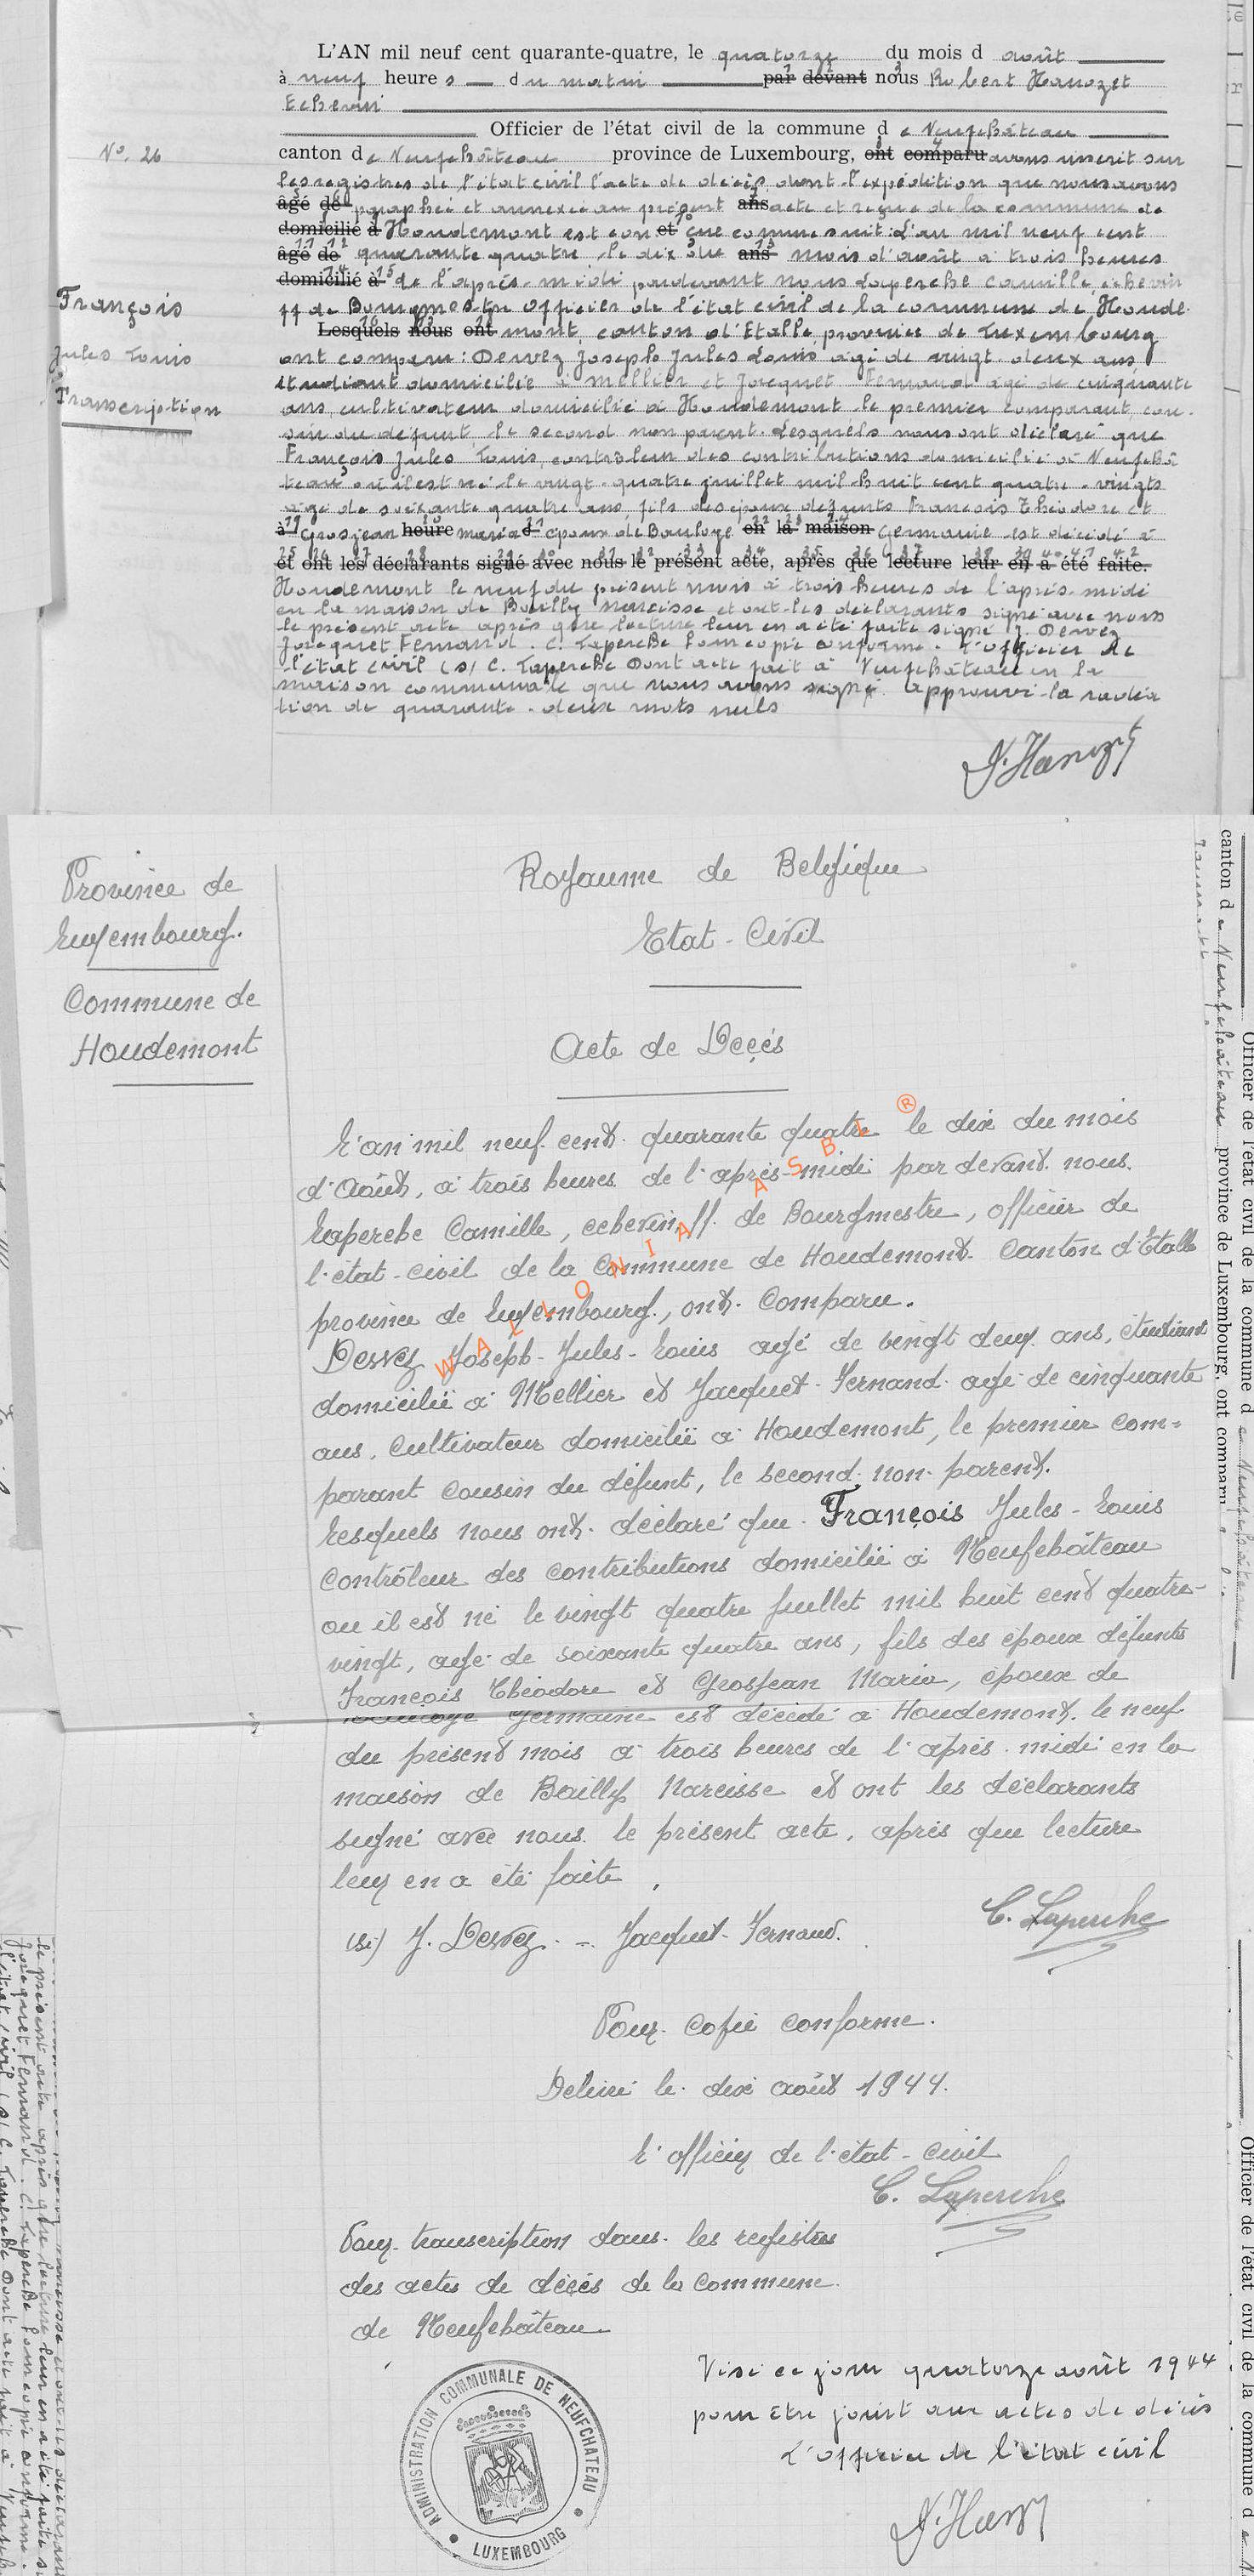 L'AN mil neuf cent quarante-quatre, le quatorze du mois d août
à neuf heure s du matin par devant nous Robert Hanozet
Echevin
Officier de l'état civil de la commune de Neufchâteau
No. 26
canton de Neufchâteau province de Luxembourg, ont comparu avons inscrit sur
les registres de l'état civil l'acte de décès dont l'expédition que nous avons
âgé de paraphée et annexée au présent ans acte et reçue de la commune de
domicilié à Houdemont est con et çue comme suit: L'an mil neuf cent
âgé de quarante quatre le dix du ans mois d'août à trois heures
domicilié à de l'après-midi pardevant nous Laperche Camille échevin
François
ff de Bourgmestre Officier de l'état civil de la commune de Houde
Lesquels nous ont mont, canton d'Etalle, province de Luxembourg
Jules Louis
ont comparu: Dervez Joseph Jules Louis âgé de vingt-deux ans
étudiant domicilié à Mellier et Jacquet Fernand âgé de cinquante
Transcription
ans, cultivateur domicilié à Houdemont le premier comparant, cou-
sin du défunt, le second non parent. Lesquels nous ont déclaré que
François Jules Louis, contrôleur des contributions domicilié à Neufchâ
teau où il est né le vingt-quatre juillet mil huit cent quatre-vingts
âgé de soixante quatre ans fils des époux défunts François Théodore et
à Grosjean heure Maria et époux de Bouloye en la maison Germaine est décédé à
et ont les déclarants signé avec nous le présent acte, après que lecture leur en a été faite.
Houdemont le neuf du présent mois à trois heures de l'après-midi
en la maison de Bailly Narcisse et ont les déclarants signé avec nous
le présent acte après que lecture leur en a été faite signé J. Dervez
Jacquet Fernand. C. Laperche Pour copie conforme. L'Officier de
l'état civil (s) C. Laperche Dont acte fait à Neufchâteau en la
maison communale que nous avons signé. Approuvé la radia
tion de quarante-deux mots nuls
Province de
Luxembourg.
Commune de
Houdemont
Royaume de Belgique
Etat-Civil
Acte de Décés
L'an mil neuf cent quarante quatre le dix du mois
d'Août, à trois heures de l'après-midi par devant nous
Laperche Camille, echevin ff. de Bourgmestre, officier de
l'état-civil de la Commune de Houdemont Canton d'Etalle
province de Luxembourg, ont Comparu.
Dervez Joseph-Jules-Louis agé de vingt deux ans, étudiant
domicilié à Mellier et Jacquet-Fernand agé de cinquante
ans, Cultivateur domicilié à Houdemont, le premier com=
parant cousin du défunt, le second non parent.
Lesquels nous ont déclaré que François Jules-Louis
Contrôleur des contributions domicilié à Neufchâteau
ou il est né le vingt quatre juillet mil huit cent quatre-
vingt, agé de soixante quatre ans, fils des époux défunts
François Théodore et Grosjean Maria, époux de
Bouloye Germaine est décédé à Houdemont le neuf
du présent mois à trois heures de l'après-midi en la
maison de Bailly Narcisse et ont les déclarants
signé avec nous le présent acte, après que lecture
leur en a été faite.
C. Laperche
(sé) J. Dervez. - Jacquet-Fernand.
Pour copie conforme.
Délivré le dix août 1944.
L'officier de l'état-civil
C. Laperche
Pour transcription dans les registres
des actes de décés de la Commune
de Neufchâteau
Visé ce jour quatorze août 1944
pour être joint aux actes de décès
L'officier de l'état civil
ADMINISTRATION COMMUNALE DE NEUFCHATEAU
LUXEMBOURG
WALLONIA ASBL ®
canton de Neufchâteau province de Luxembourg, ont comparu
Officier de l'état civil de la commune de Neufchâteau
Officier de l'état civil de la commune d